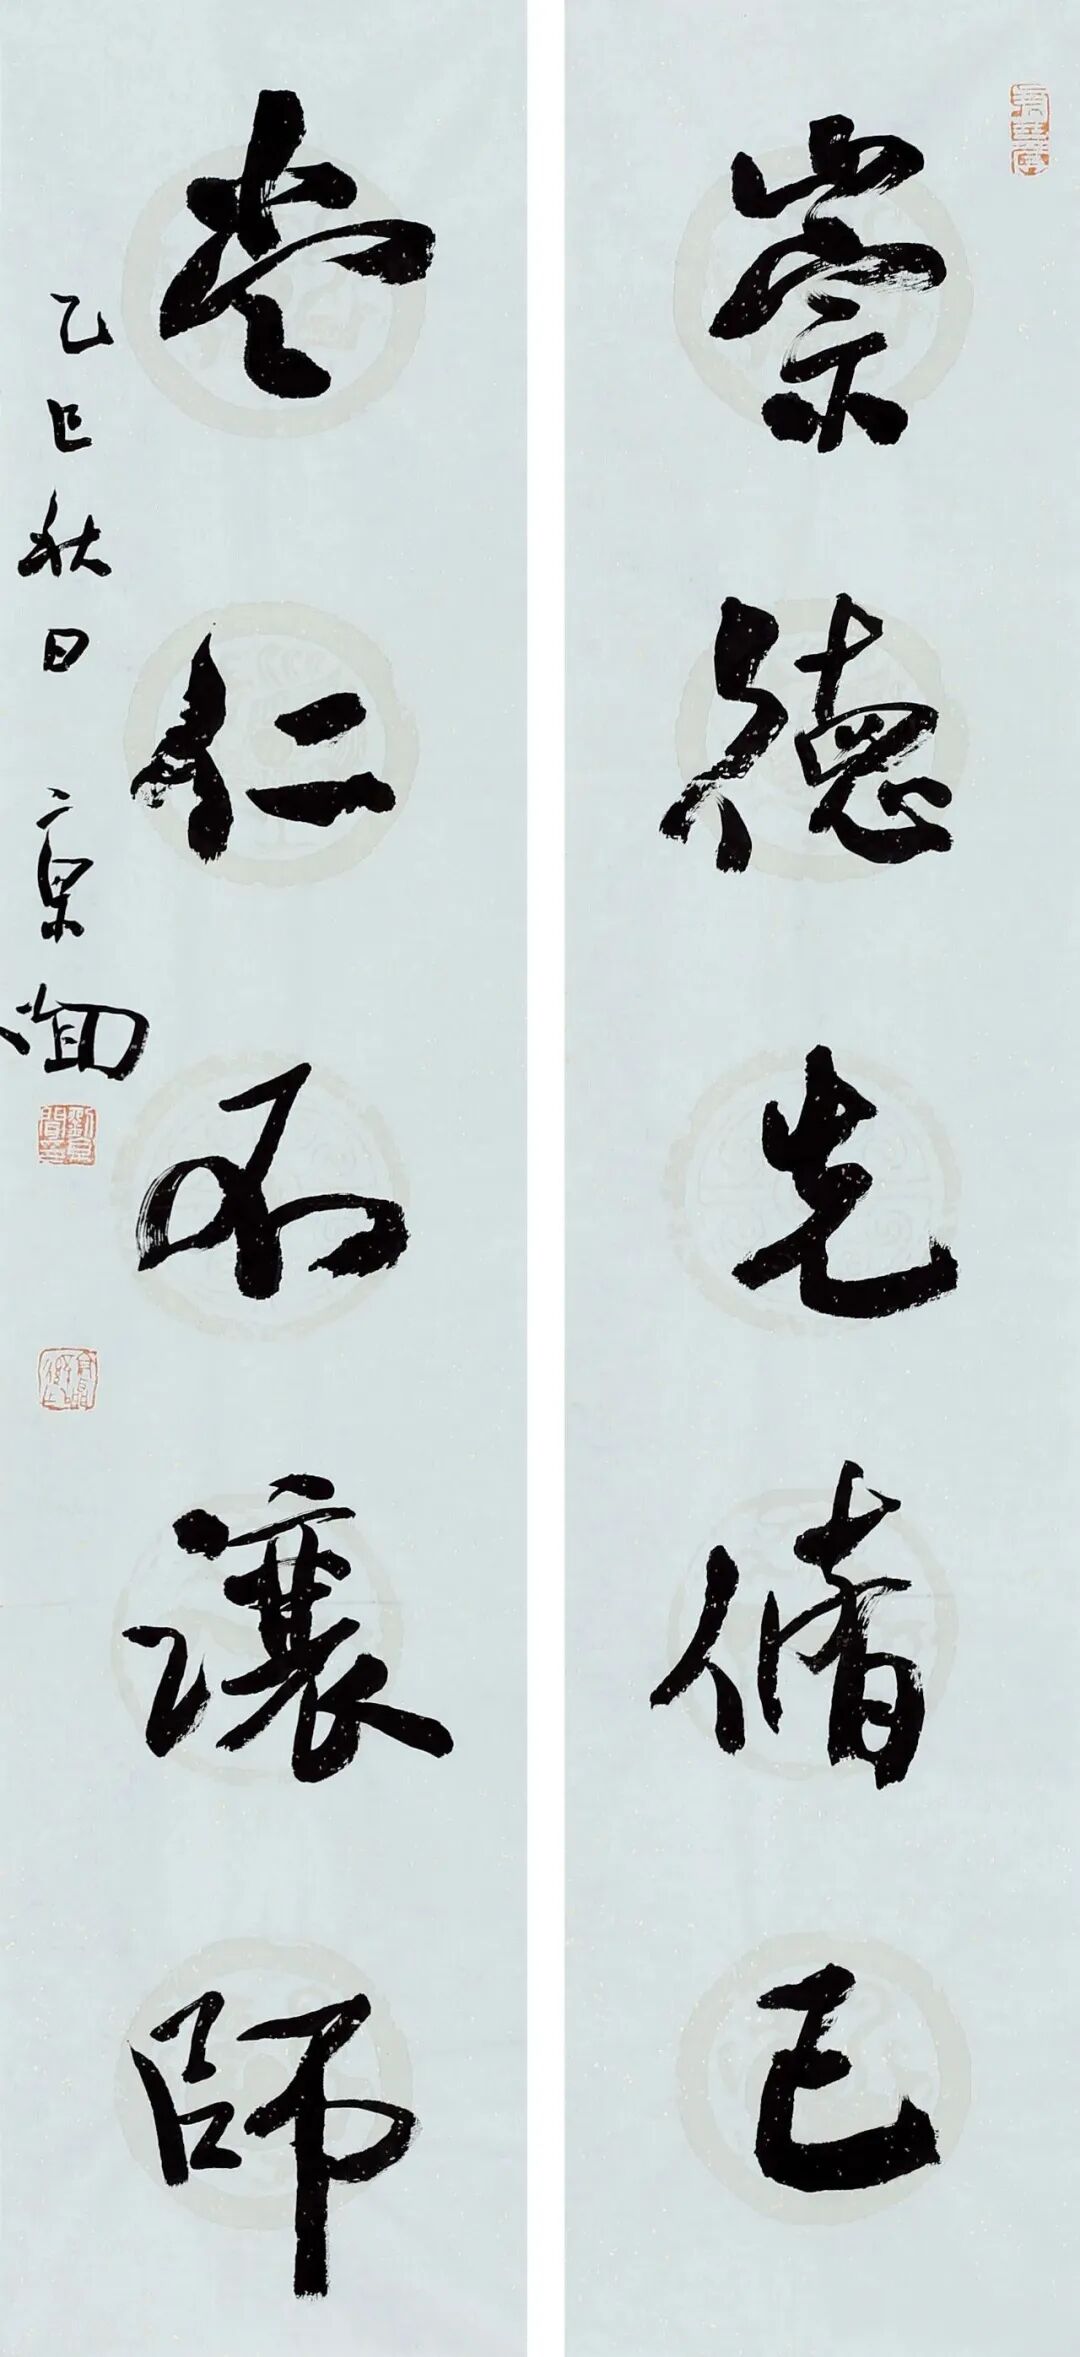 崇德先脩己
當仁不讓師
乙巳秋日